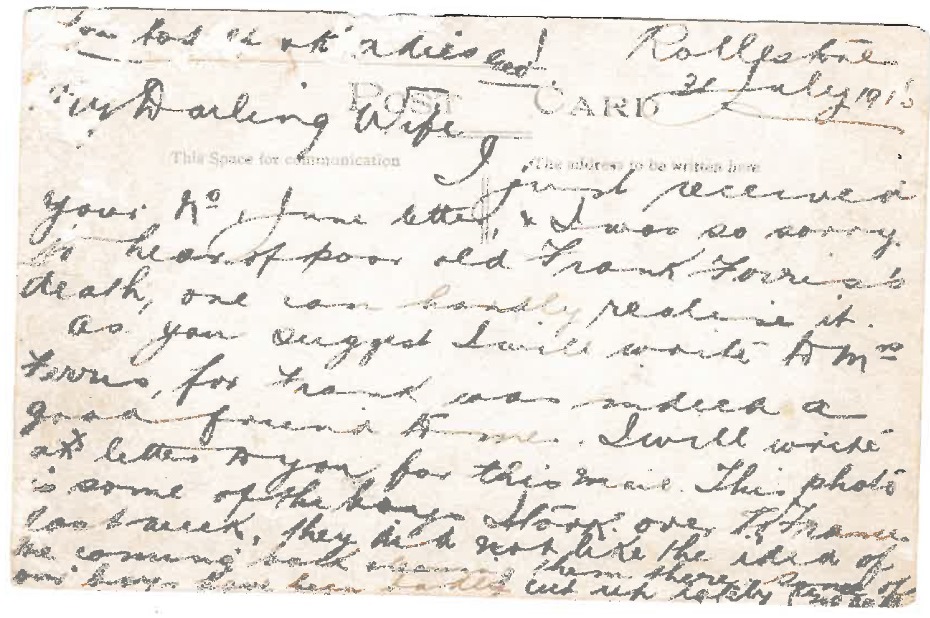 Rollestone
21 July 191
POST CARD
My Darling Wife,
This Space for communication
The address to be written here
I just received
your No 1 June letter, & I was so sorry
to hear of poor old Frank Ferris's
death, one can hardly realise it.
As you suggest I will write to Mrs
Ferris, for Frank was indeed a
good friend to me. I will write
a letter to you for this mail. This photo
is some of the boys I took over to France
last week, they did not like the idea of
me coming back leaving them there, some of
our boys have been badly cut up lately